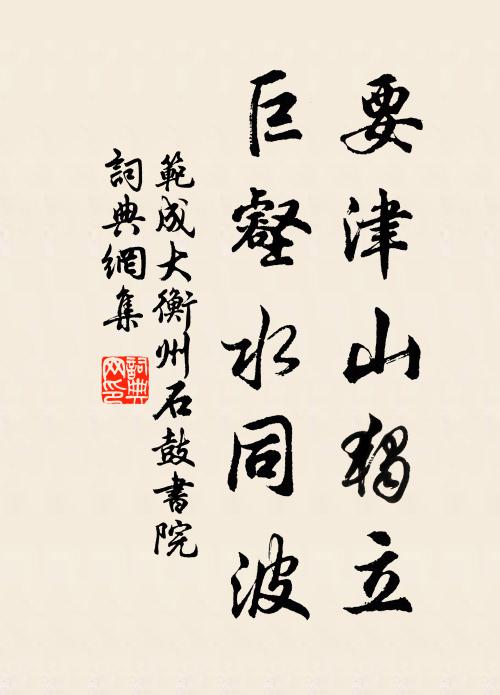 要津山獨立
巨壑水同波
範成大衡州石鼓書院
詞典網集
詞典
网印